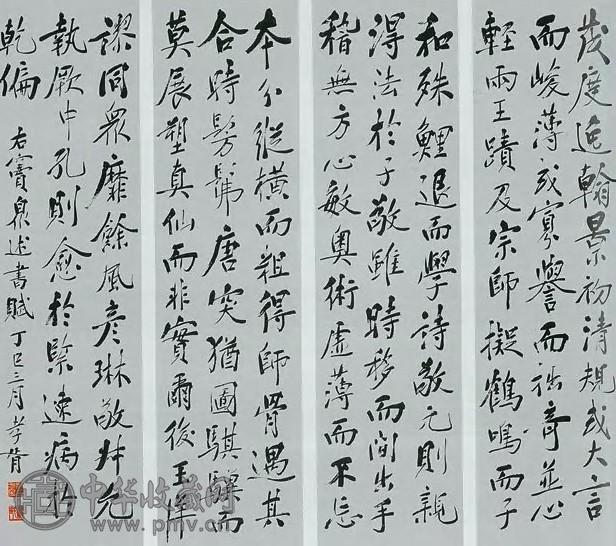 茂度逸翰景初清規或大言
而峻薄或寡譽而祛奇並心
輕兩王蹟及宗師擬鶴鳴而子
和殊鯉退而學詩敬元則親
得法於子敬雖時移而間出手
稽無方心敏奧術虛薄而不忘
本分縱橫而粗得師骨遇其
合時髣髴唐突猶圖騏驥而
莫展塑真仙而非實爾後王
謬同眾靡餘風彥琳敬叔允
執厥中孔則愈於緊速病於
乾偏
右竇臮述書賦丁巳三月孝胥
中华收藏网
www.pmv.cn